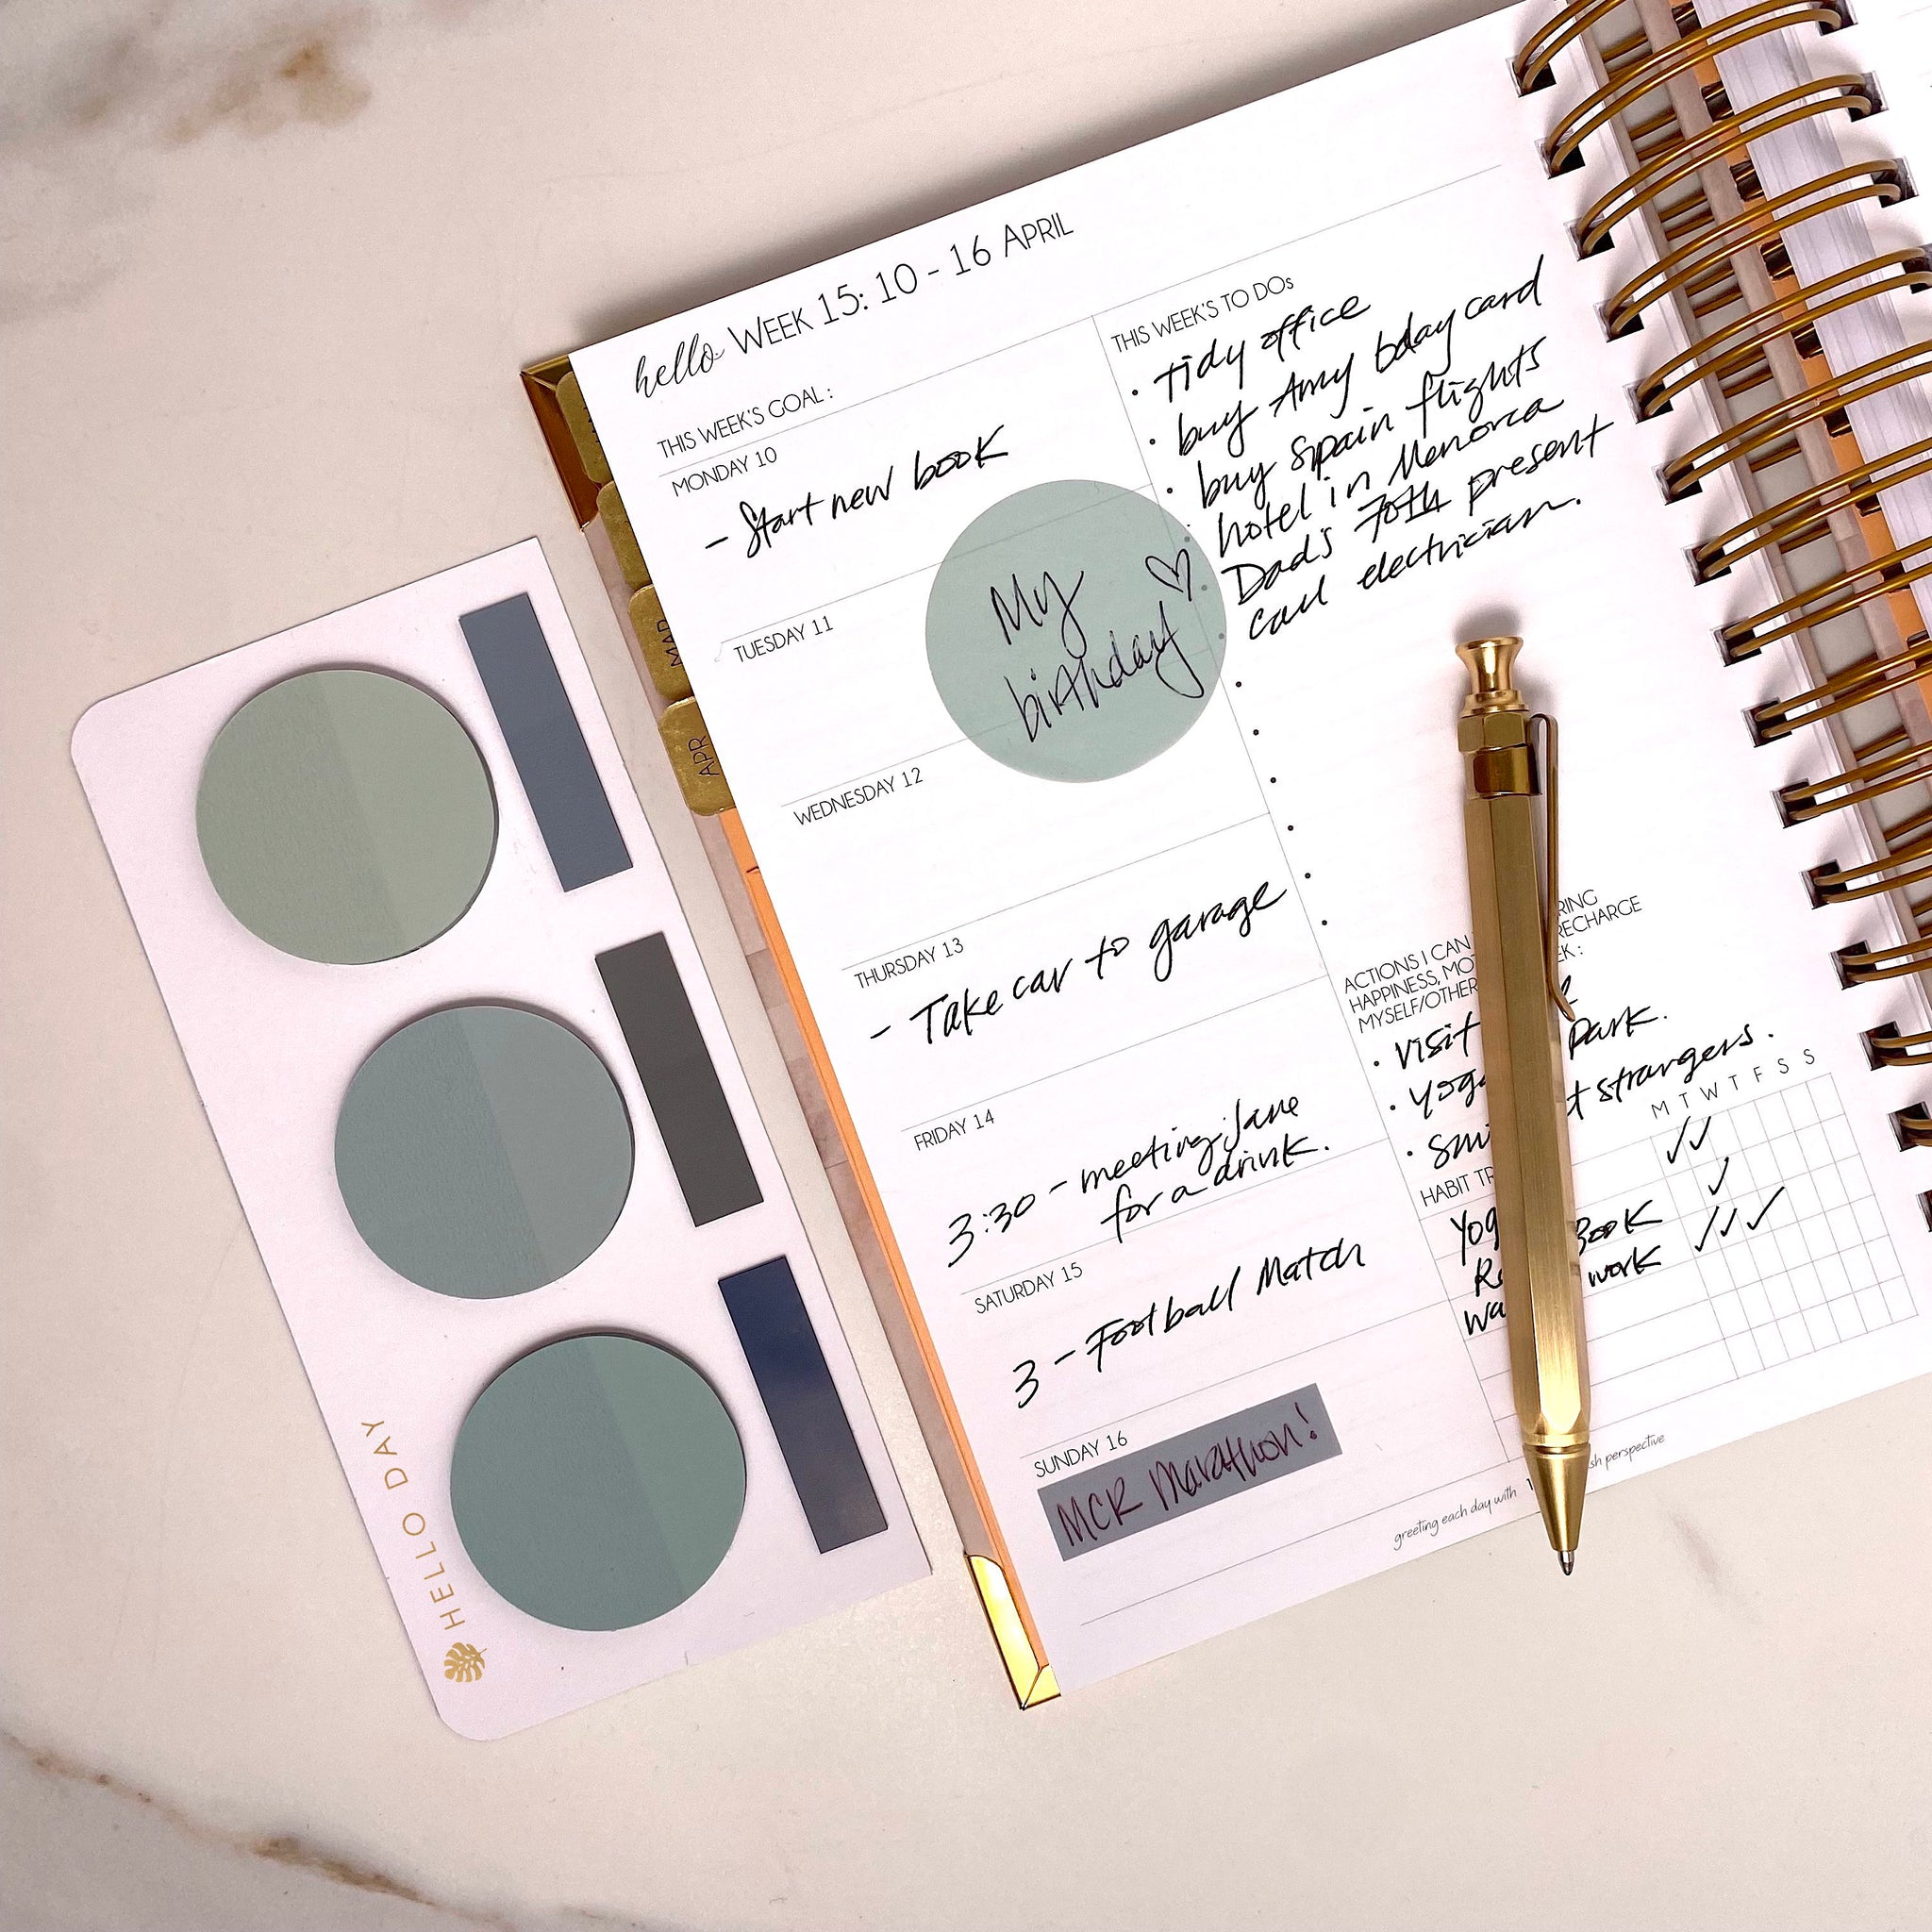 hello WEEK 15: 10 - 16 APRIL
THIS WEEK'S GOAL :
MONDAY 10
- Start new book
TUESDAY 11
My
birthday
WEDNESDAY 12
THURSDAY 13
- Take car to garage
FRIDAY 14
3:30 - meeting Jane
for a drink.
SATURDAY 15
3 - Football Match
SUNDAY 16
MCR Marathon!
THIS WEEK'S TO DOs
• tidy office
• buy Amy bday card
• buy Spain flights
hotel in Menorca
Dad's 70th present
call electrician.
ACTIONS I CAN
RING
HAPPINESS, MO
RECHARGE
MYSELF/OTHER
EK :
• visit
Park.
• yoga
• smi
t strangers.
M T W T F S S
HABIT TR
Yog
Book
Re
work
wa
greeting each day with
sh perspective
MAR
APR
HELLO DAY